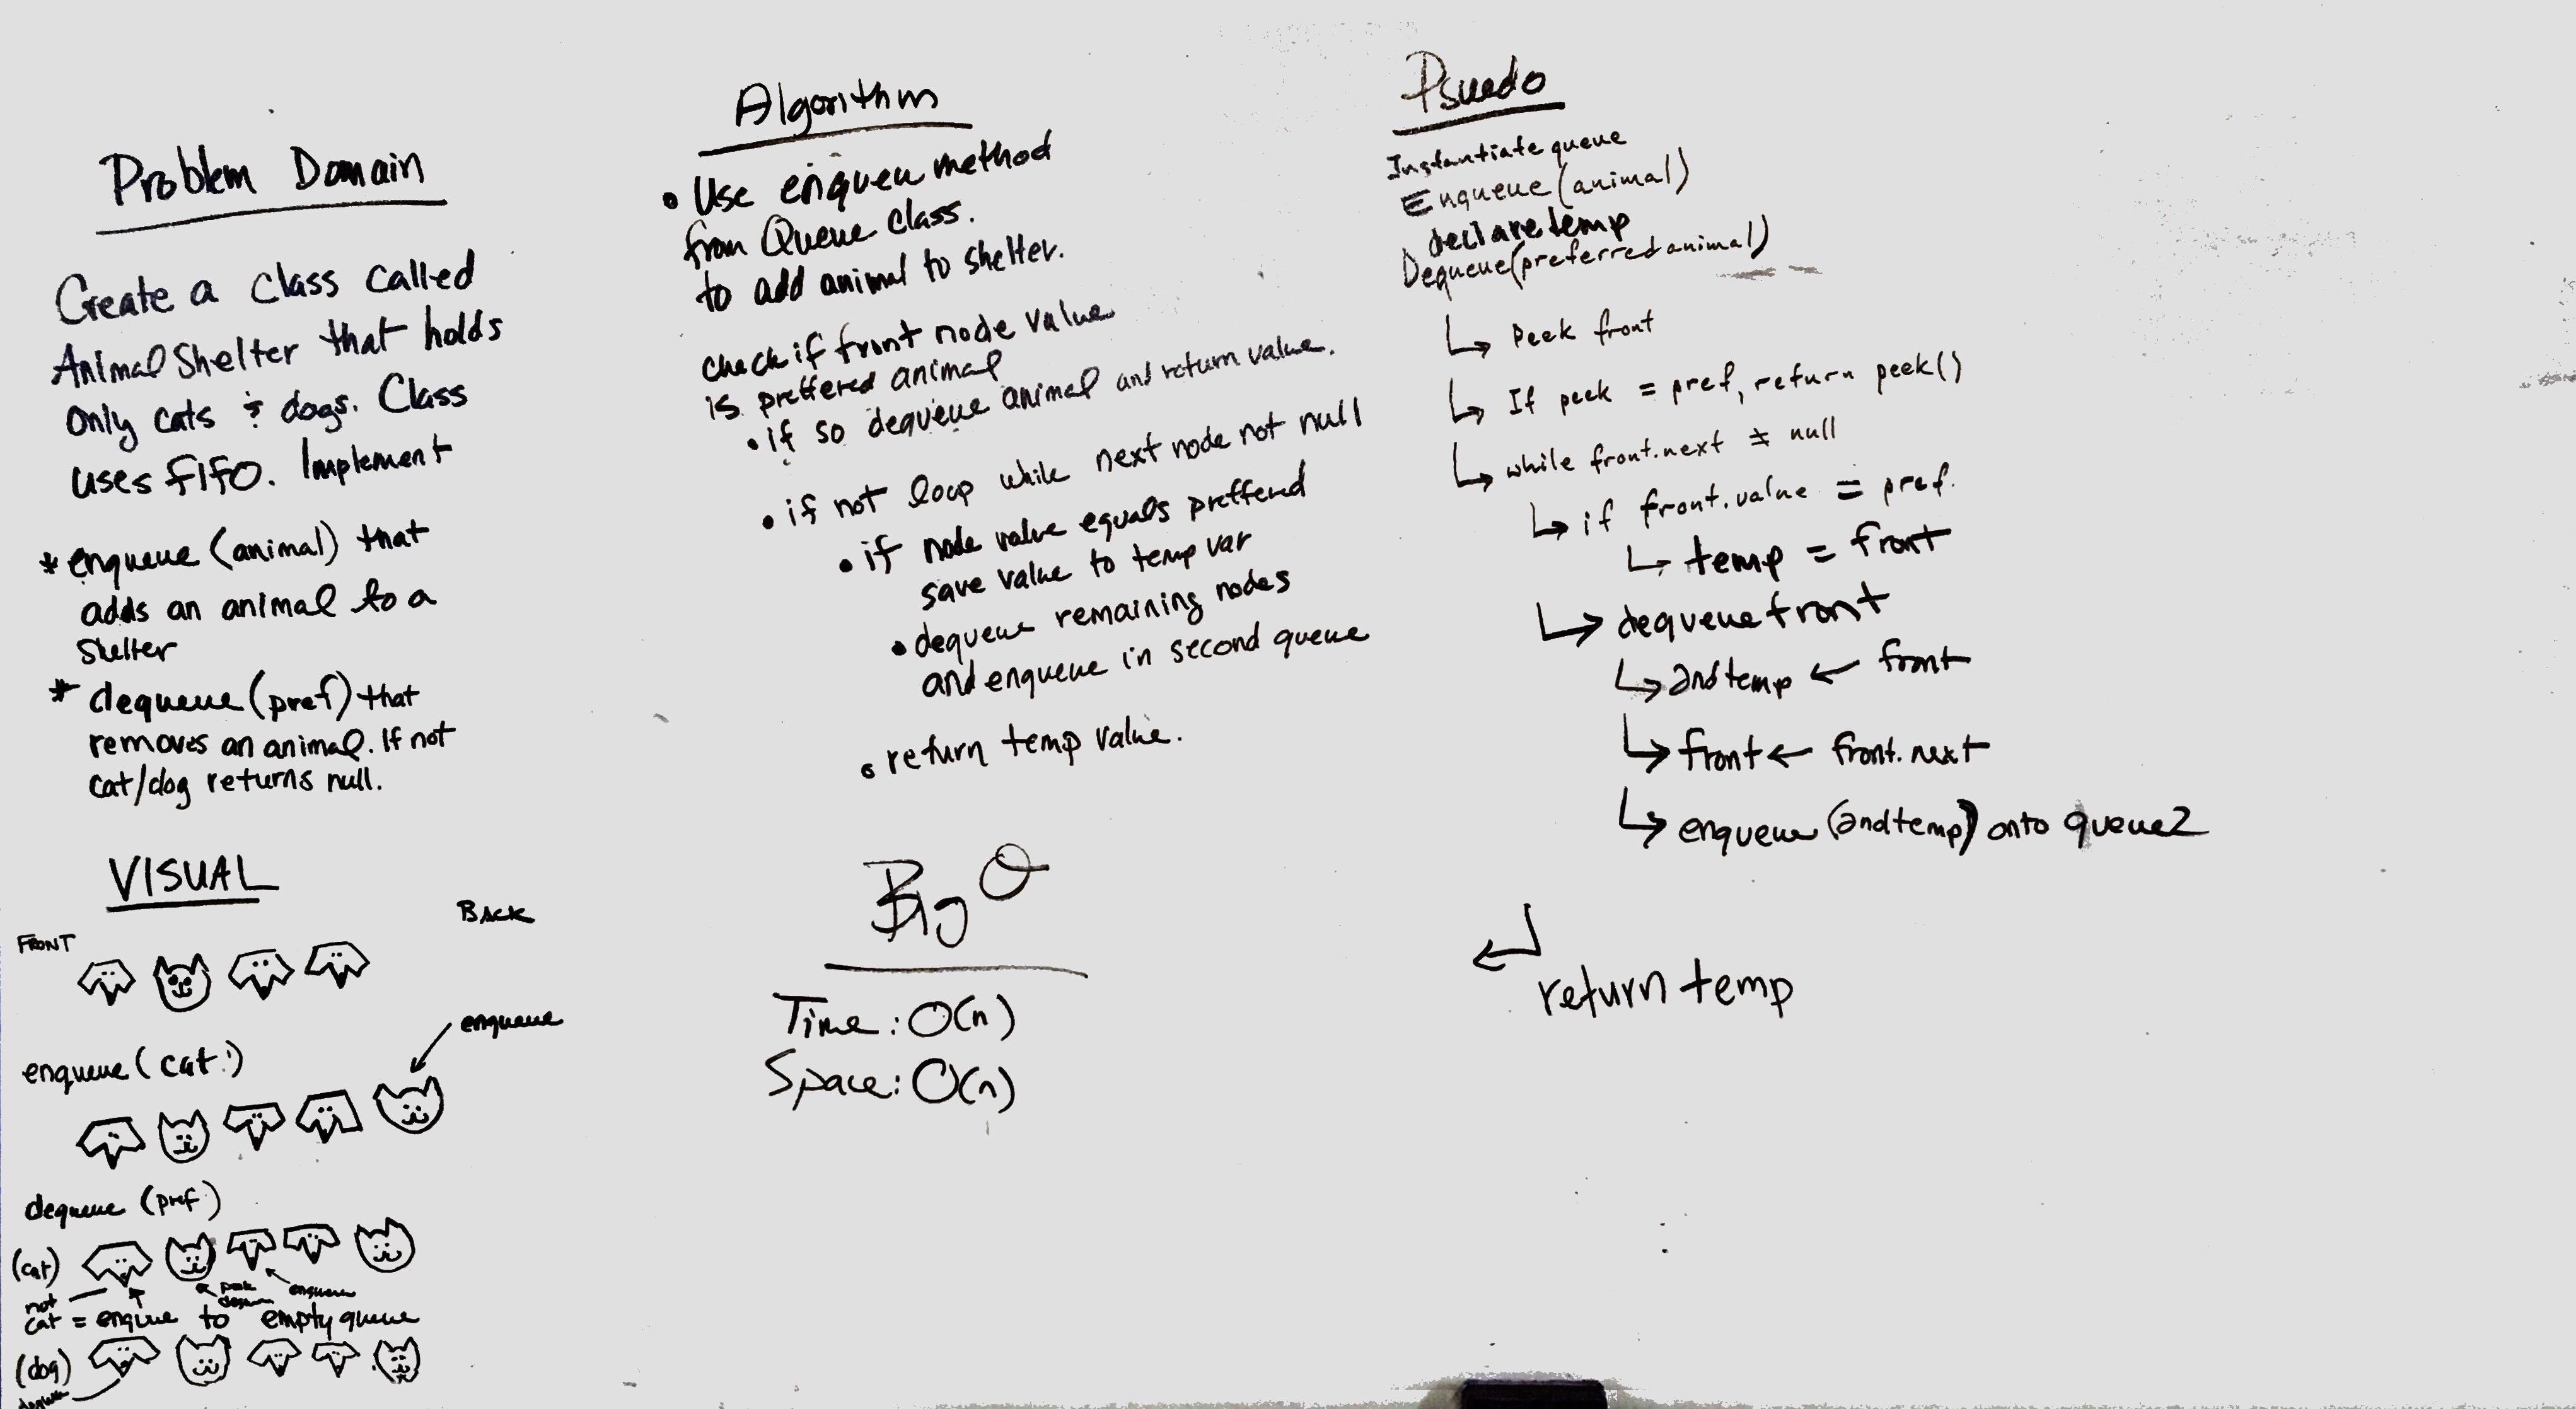 Problem Domain
Create a class called
AnimalShelter that holds
only cats & dogs. Class
uses FIFO. Implement
* enqueue (animal) that
adds an animal to a
Shelter
* dequeue (pref) that
removes an animal. If not
cat/dog returns null.
VISUAL
FRONT
BACK
enqueue (cat)
enqueue
dequeue (pref)
(cat)
not
peek
enqueue
cat = enque to empty queue
(dog)
Algorithm
• Use enqueu method
from Queue class.
to add animal to shelter.
check if front node value
is preffered animal
• if so dequeue animal and return value.
• if not loop while next node not null
• if node value equals preffered
save value to temp var
• dequeue remaining nodes
and enqueue in second queue
• return temp value.
Big O
Time: O(n)
Space: O(n)
Psuedo
Instantiate queue
Enqueue (animal)
declare temp
Dequeue(preferred animal)
↳ Peek front
↳ If peek = pref, return peek()
↳ while front.next ≠ null
↳ if front.value = pref.
↳ temp = front
↳ dequeue front
↳ 2ndtemp ← front
↳ front ← front.next
↳ enqueue (2ndtemp) onto queue2
↲
return temp